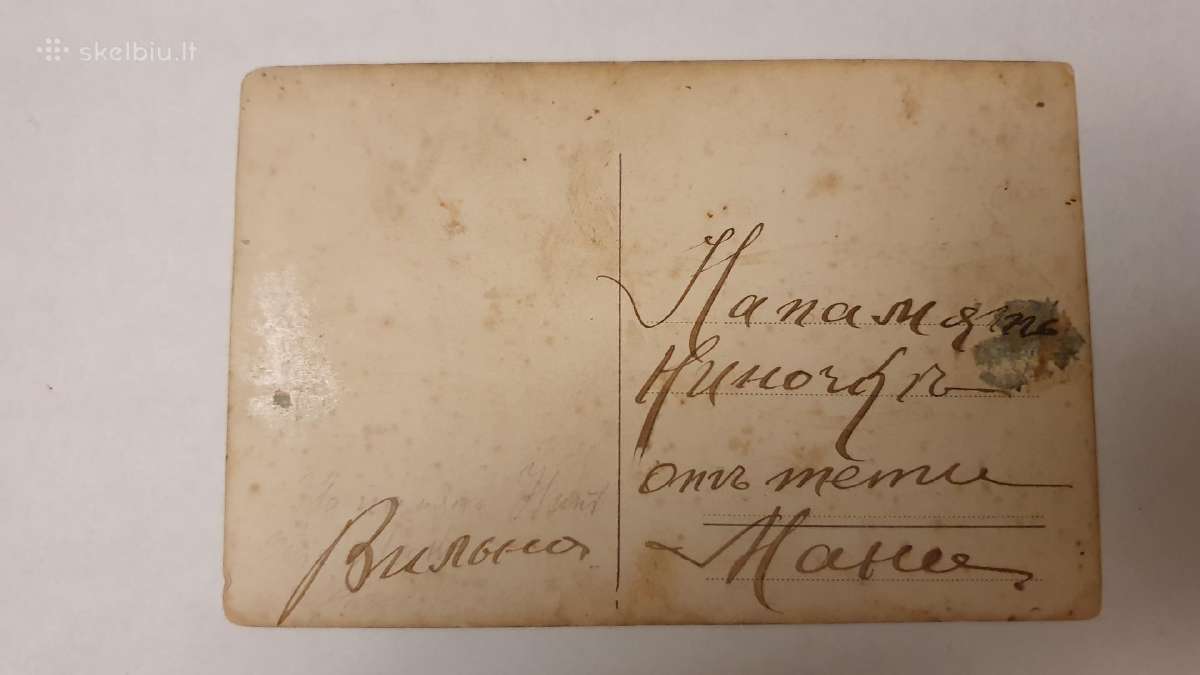 skelbiu.lt
Напамять
Ниночкѣ
отъ тети
Мани
Вильна